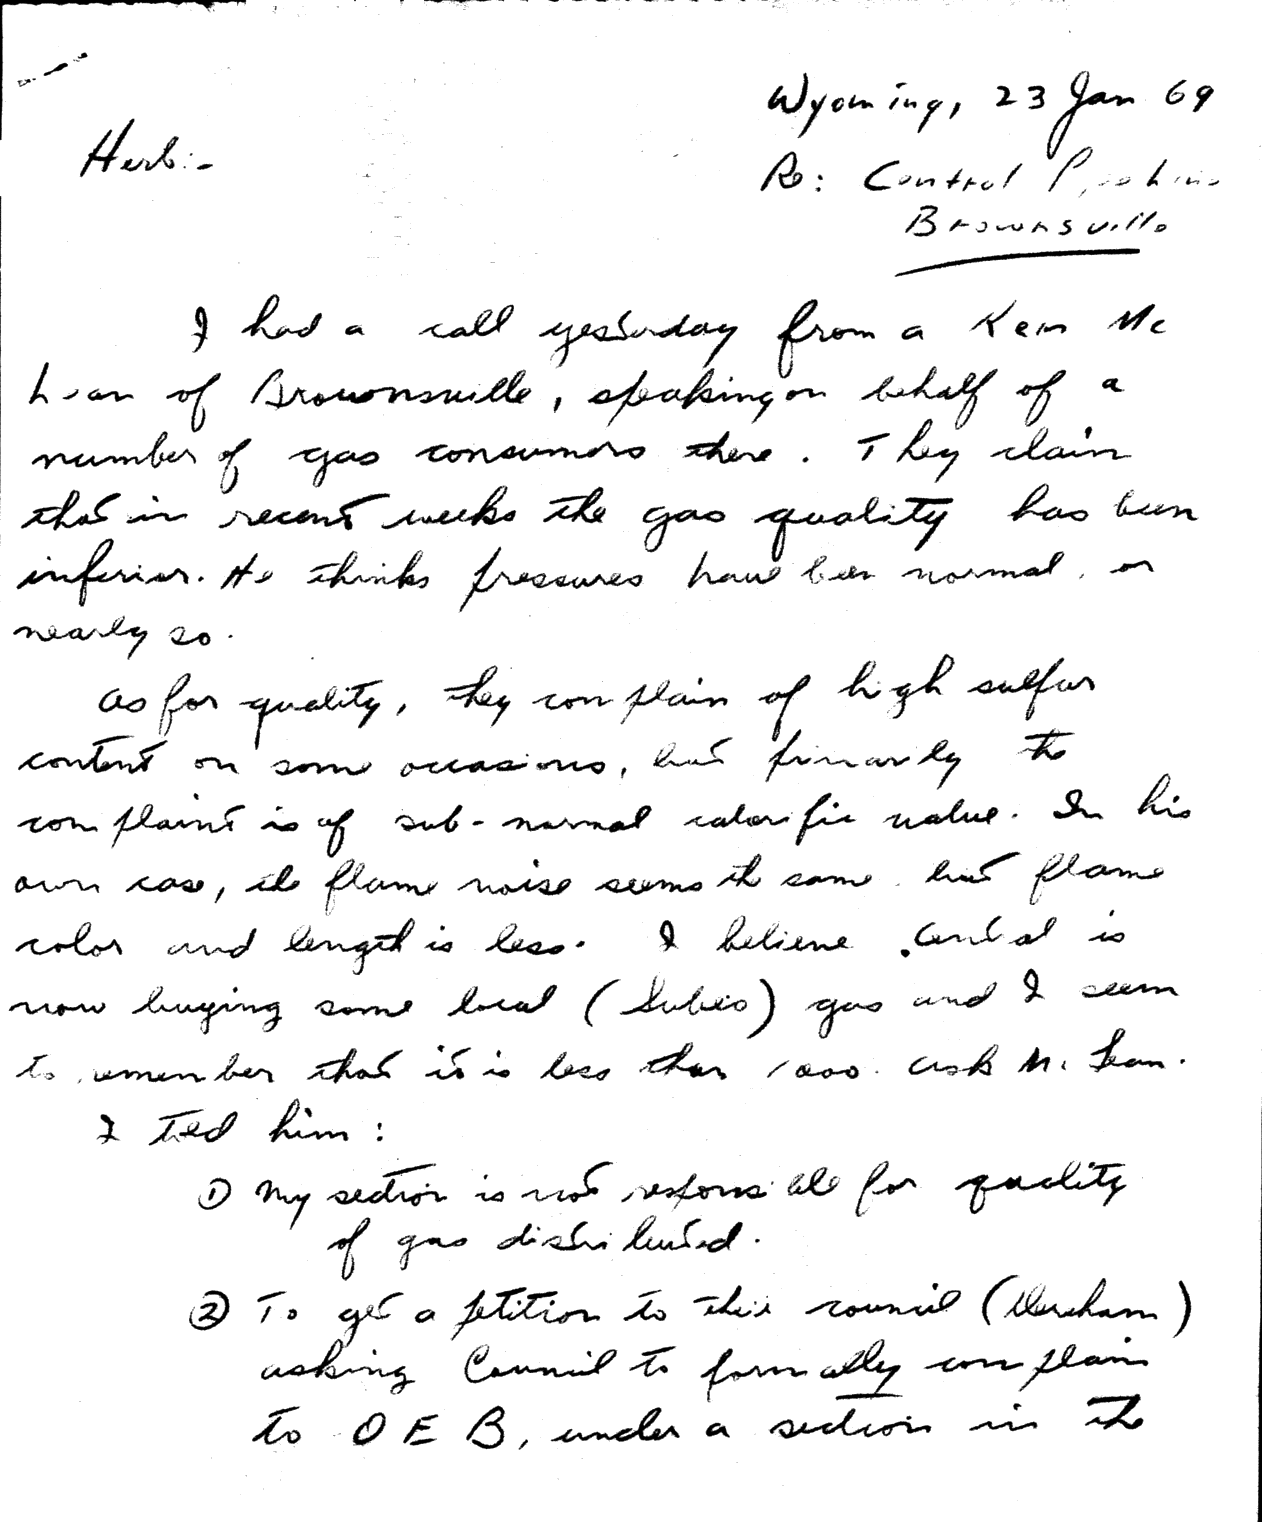 Wyoming, 23 Jan 69
Herb:-
Re: Central Pipeline
Brownsville
I had a call yesterday from a Ken Mc
Lean of Brownsville, speaking on behalf of a
number of gas consumers there. They claim
that in recent weeks the gas quality has been
inferior. He thinks pressures have been normal, or
nearly so.
As for quality, they complain of high sulfur
content on some occasions, but primarily the
complaint is of sub-normal calorific value. In his
own case, the flame noise seems the same but flame
color and length is less. I believe Central is
now buying some local ( ) gas and I seem
to remember that it is less than 1000. Ask Mc Lean.
I told him:
① My section is not responsible for quality
of gas distributed.
② To get a petition to their council (Dereham)
asking Council to formally complain
to OEB, under a section in the